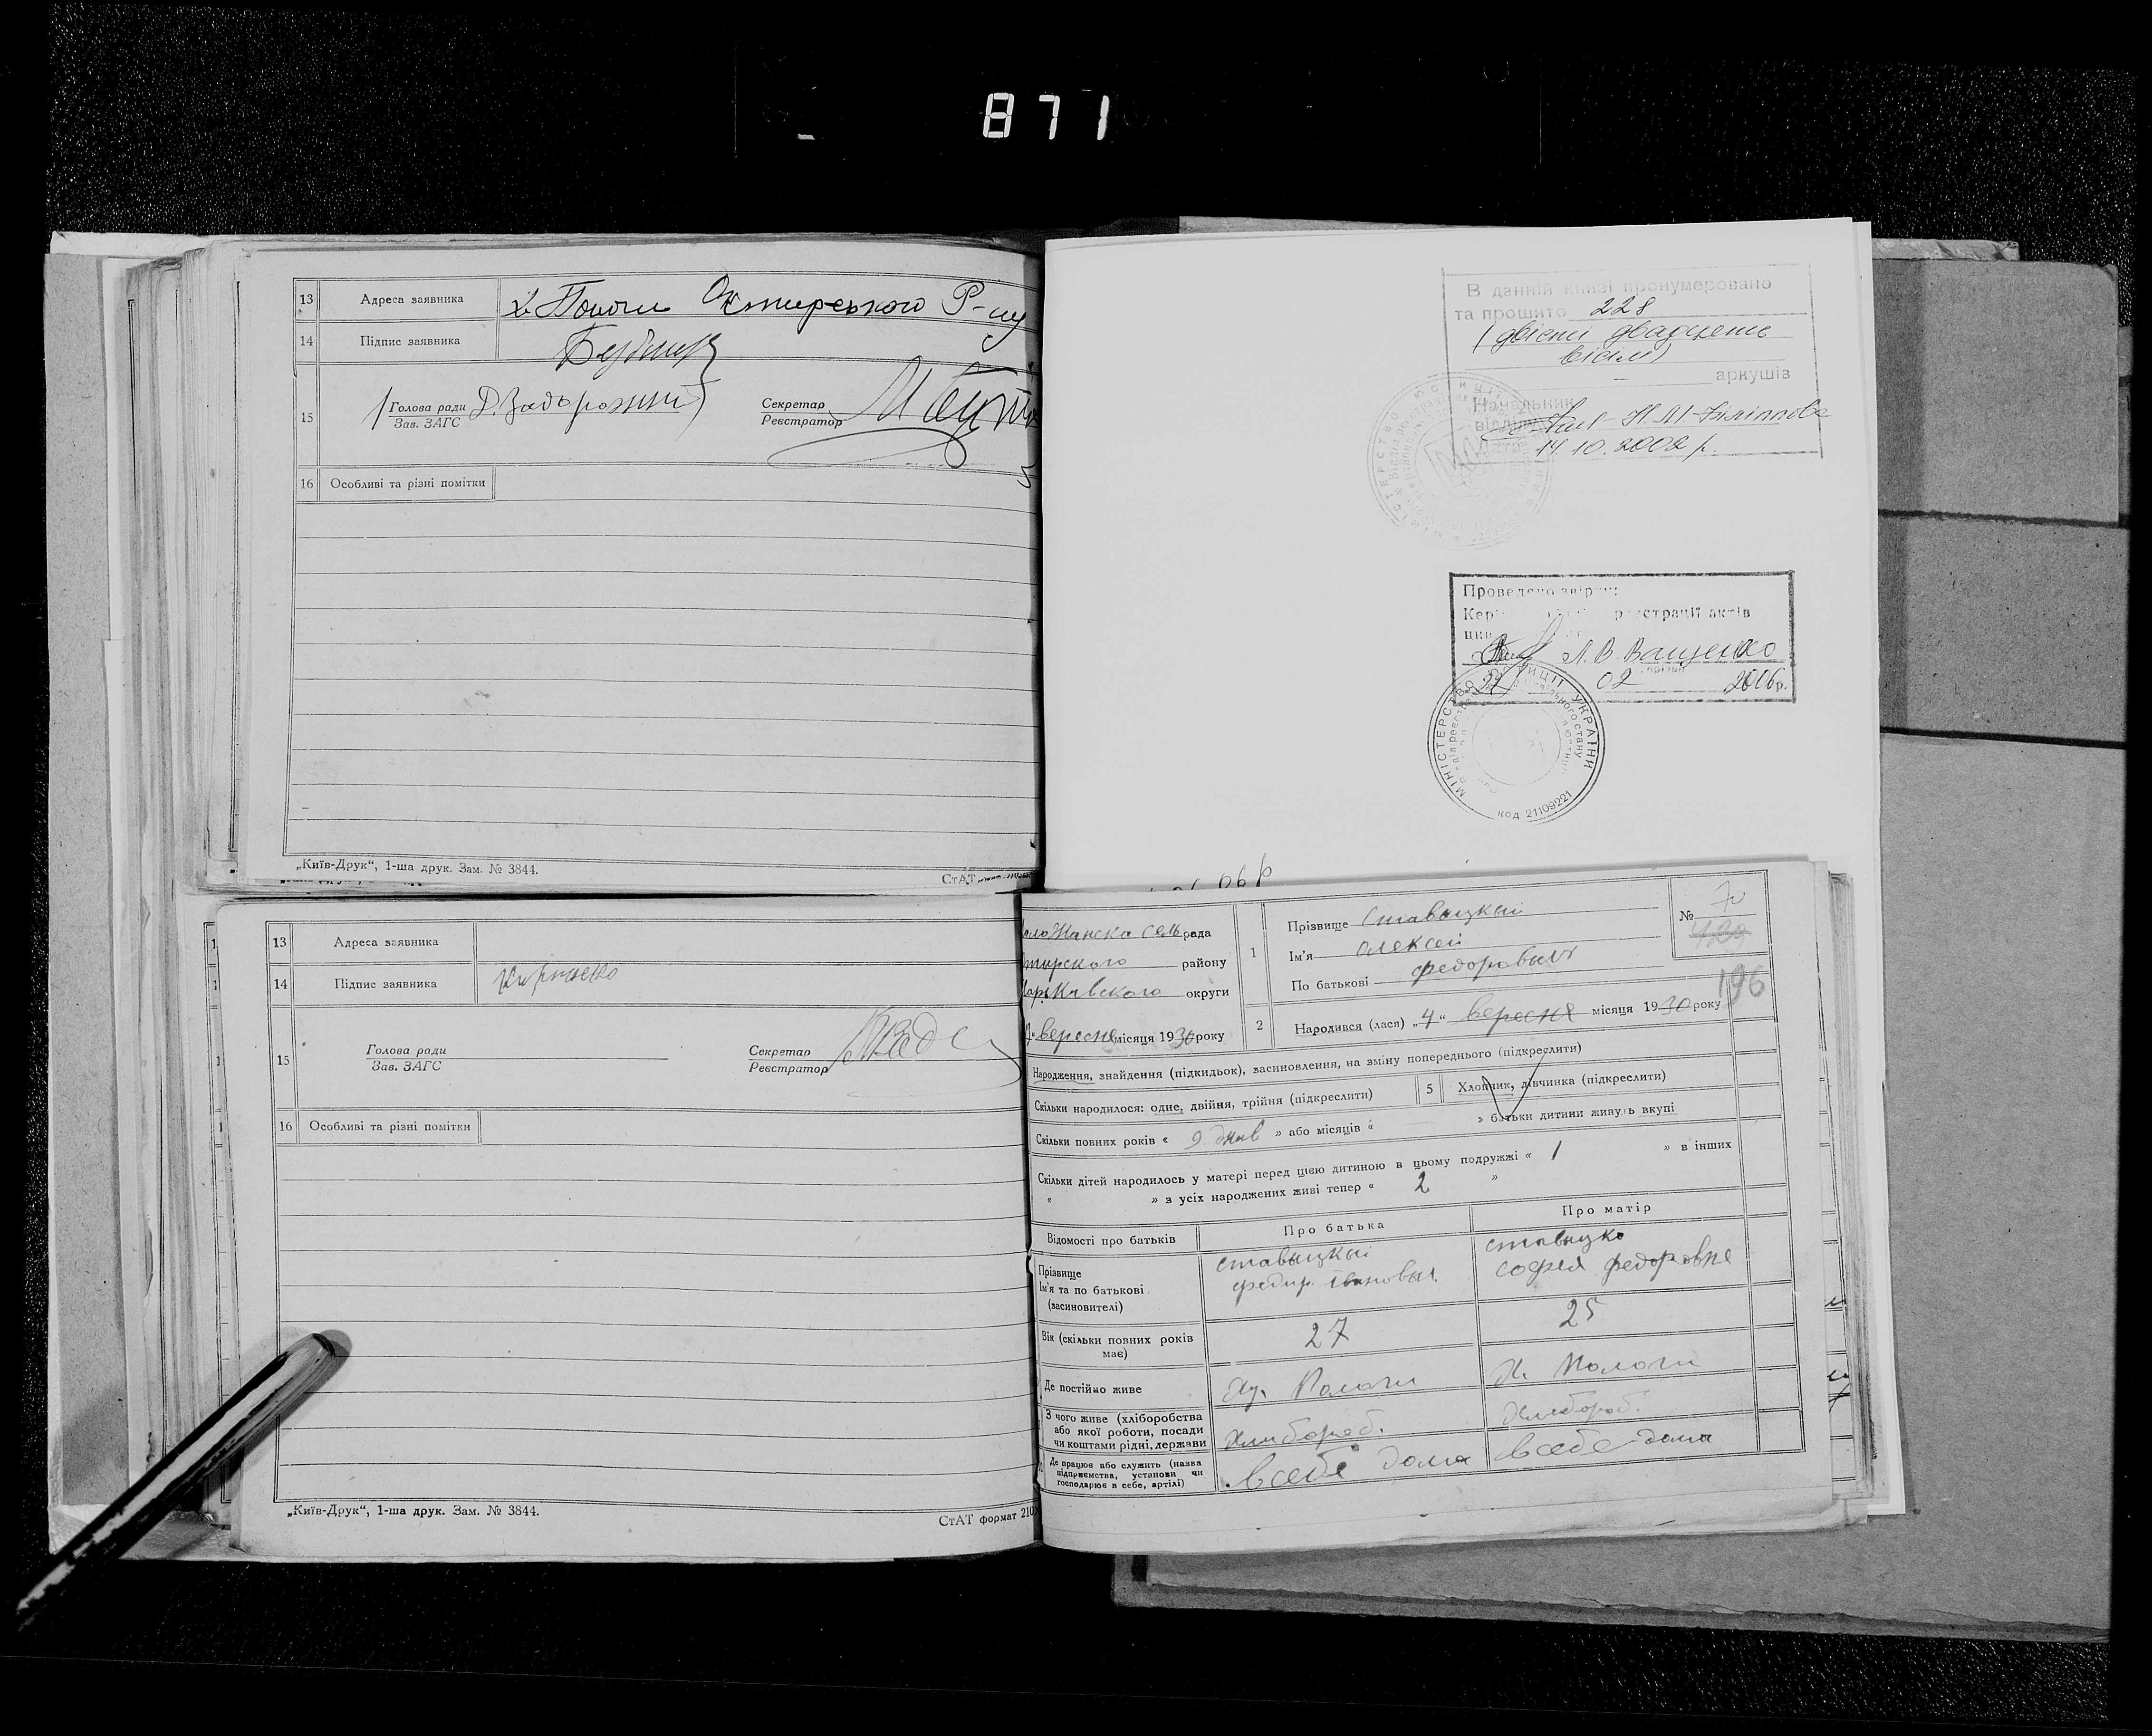 871
13 Адреса заявника х. Пологи Охтирського Р-ну
14 Підпис заявника
15 Голова ради Д. Задорожний Секретар
Зав. ЗАГС Реєстратор
16 Особливі та різні помітки
„Київ-Друк“, 1-ша друк. Зам. № 3844. СтАТ
В данній книзі пронумеровано
та прошито 228
(двісті двадцять
вісім)
аркушів
Начальник
відділу
14.10.2002 р.
Проведено звірку:
реєстрації актів
Л.В. Ващенко
02 2006р.
МІНІСТЕРСТВО ЮСТИЦІЇ УКРАЇНИ
код 21109221
06 р
13 Адреса заявника
14 Підпис заявника
15 Голова ради Секретар
Зав. ЗАГС Реєстратор
16 Особливі та різні помітки
„Київ-Друк“, 1-ша друк. Зам. № 3844. СтАТ формат 210
сель рада
району
округи
вересня місяця 1930 року
№ 70
196
1 Прізвище Ставыцкый
Ім'я Олексей
По батькові федоровыч
2 Народився (лася) „4“ вересня місяця 1930 року
Народження, знайдення (підкидьок), засиновлення, на зміну попереднього (підкреслити)
Скільки народилося: одне, двійня, трійня (підкреслити) 5 Хлопчик, дівчинка (підкреслити)
Скільки повних років « 9 днів » або місяців « » батьки дитини живуть вкупі
Скільки дітей народилось у матері перед цією дитиною в цьому подружжі « 1 » в інших
« » з усіх народжених живі тепер « 2 »
Відомості про батьків Про батька Про матір
Прізвище
Ім'я та по батькові
(засиновителі)
ставыцкый
федир ивановыч
ставыцко
софия федоровне
Вік (скільки повних років
має) 27 25
Де постійно живе Ху. Пологи Х. Пологи
З чого живе (хліборобства
або якої роботи, посади
чи коштами рідні, держави
Хлибороб. Хлибороб.
Де працює або служить (назва
підприємства, установи чи
господарює в себе, артілі)
в себе дома в себе дома